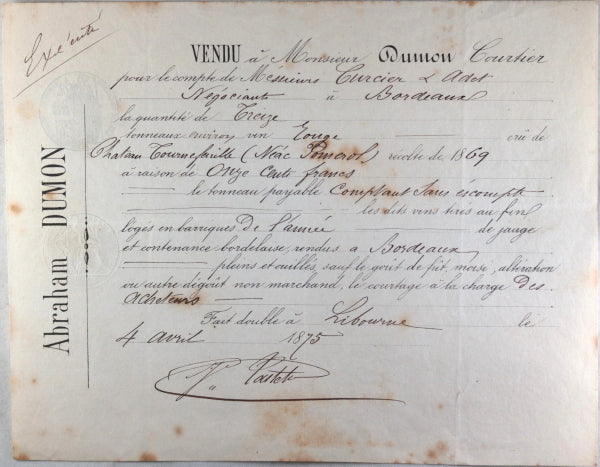 Exécuté
Abraham DUMON
VENDU à Monsieur Dumon Courtier
pour le compte de Messieurs Curcier & Adet
Négociants à Bordeaux
la quantité de Treize
tonneaux environ vin Rouge crû de
Chateau Tournefeuille (Néac Pomerol) récolte de 1869
à raison de Onze cents francs
le tonneau payable Comptant sans escompte
les dits vins tirés au fin
logés en barriques De l'année de jauge
et contenance bordelaise, rendus a Bordeaux
pleins et ouillés, sauf le goût de fût, moisi, altération
ou autre dégoût non marchand, le courtage à la charge Des
Acheteurs
Fait double à Libourne le
4 avril 1875